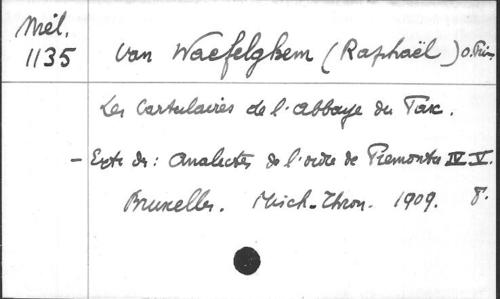 Mél.
1135
Van Waefelghem (Raphaël) O. Prém.
Les Cartulaires de l'abbaye du Parc.
- Extr. de : Analectes de l'ordre de Prémontré IV V.
Bruxelles. Misch-Thron. 1909. 8°.